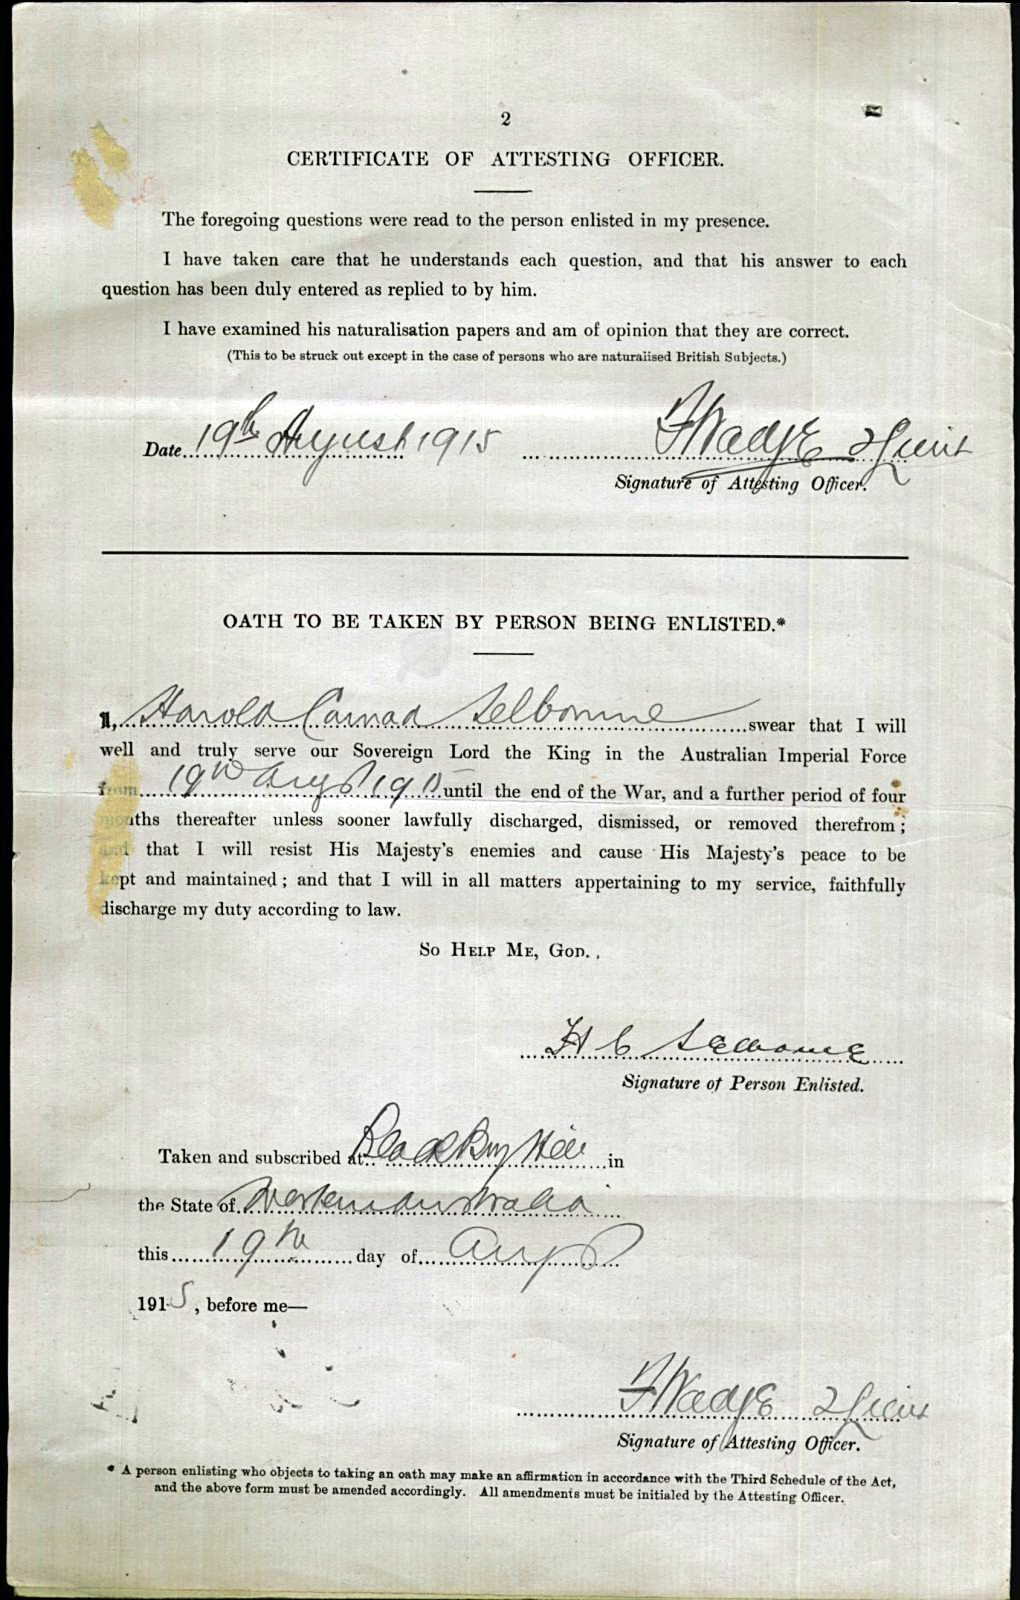 2
CERTIFICATE OF ATTESTING OFFICER.
The foregoing questions were read to the person enlisted in my presence.
I have taken care that he understands each question, and that his answer to each
question has been duly entered as replied to by him.
I have examined his naturalisation papers and am of opinion that they are correct.
(This to be struck out except in the case of persons who are naturalised British Subjects.)
Date 19th August 1915 F Wadge 2 Lieut
Signature of Attesting Officer.
OATH TO BE TAKEN BY PERSON BEING ENLISTED.*
I, Harold Selbourne swear that I will
well and truly serve our Sovereign Lord the King in the Australian Imperial Force
from 19th Augst 1915 until the end of the War, and a further period of four
months thereafter unless sooner lawfully discharged, dismissed, or removed therefrom;
and that I will resist His Majesty's enemies and cause His Majesty's peace to be
kept and maintained; and that I will in all matters appertaining to my service, faithfully
discharge my duty according to law.
So Help Me, God.
H C Selbourne
Signature of Person Enlisted.
Taken and subscribed at Blackboy Hill in
the State of Western Australia
this 19th day of Augst
1915, before me—
F Wadge 2 Lieut
Signature of Attesting Officer.
* A person enlisting who objects to taking an oath may make an affirmation in accordance with the Third Schedule of the Act,
and the above form must be amended accordingly. All amendments must be initialed by the Attesting Officer.